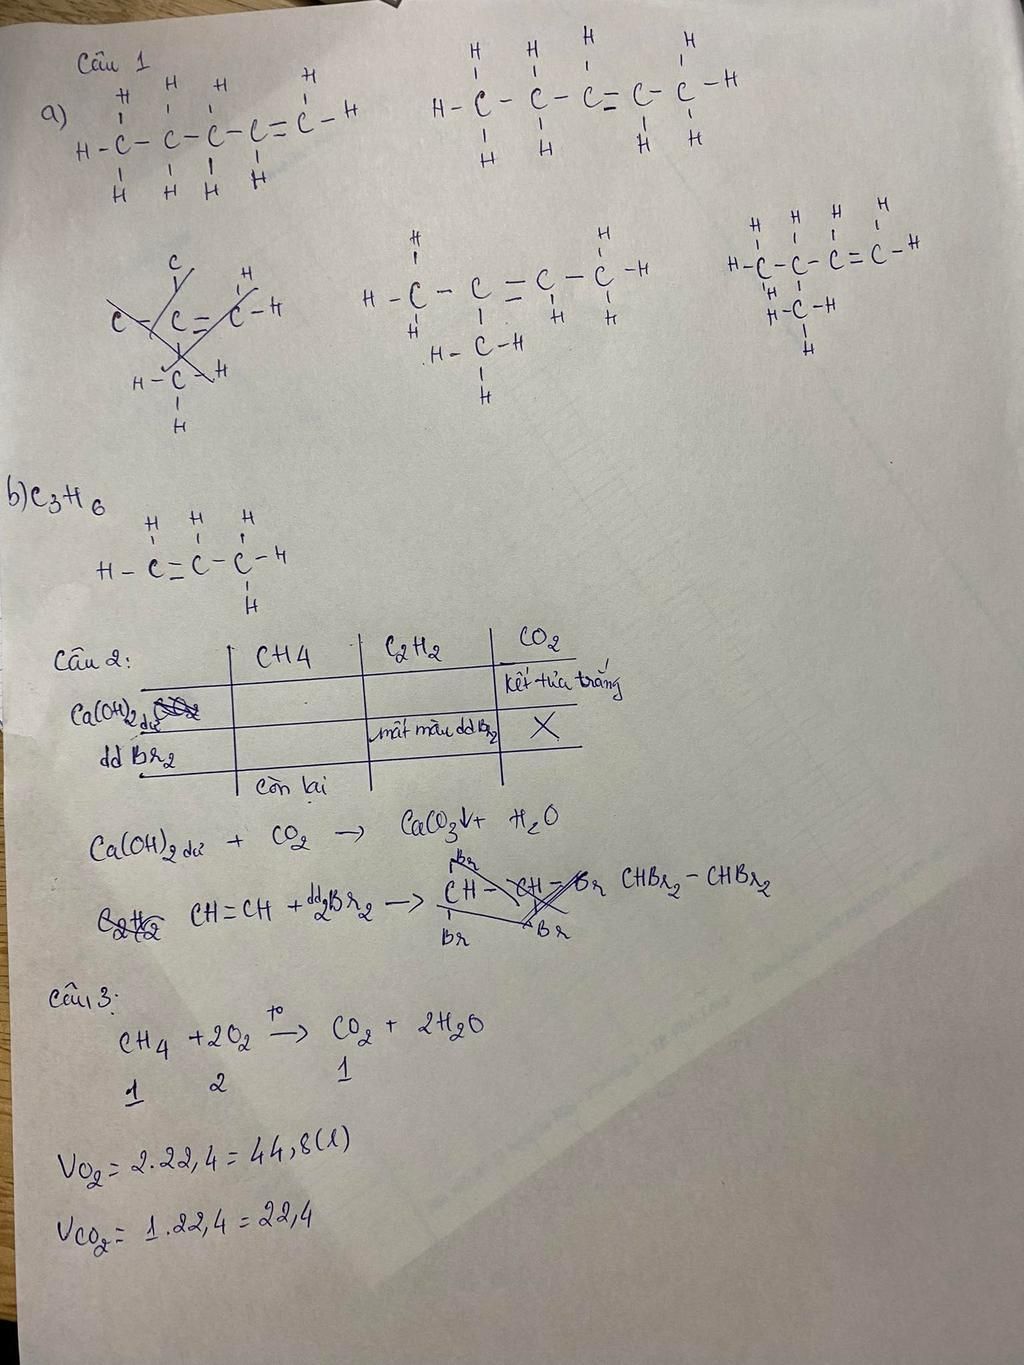 Câu 1
a)
H H H H
H - C - C - C - C = C - H
H H H H
H H H H
H - C - C - C = C - C - H
H H H H
C H
C - C = C - H
H - C - H
H
H H
H - C - C = C - C - H
H H H
H - C - H
H
H H H H
H - C - C - C = C - H
H
H - C - H
H
b) C3H6
H H H
H - C = C - C - H
H
Câu 2: CH4 C2H2 CO2
Ca(OH)2 dư CO2 kết tủa trắng
dd Br2 mất màu dd Br2 X
Còn lại
Ca(OH)2 dư + CO2 → CaCO3↓ + H2O
C2H2 CH=CH + dd 2Br2 → CH - CH - Br CHBr2 - CHBr2
Br
Br Br
Câu 3:
CH4 + 2O2 t° → CO2 + 2H2O
1 2 1
VO2 = 2.22,4 = 44,8(l)
VCO2 = 1.22,4 = 22,4